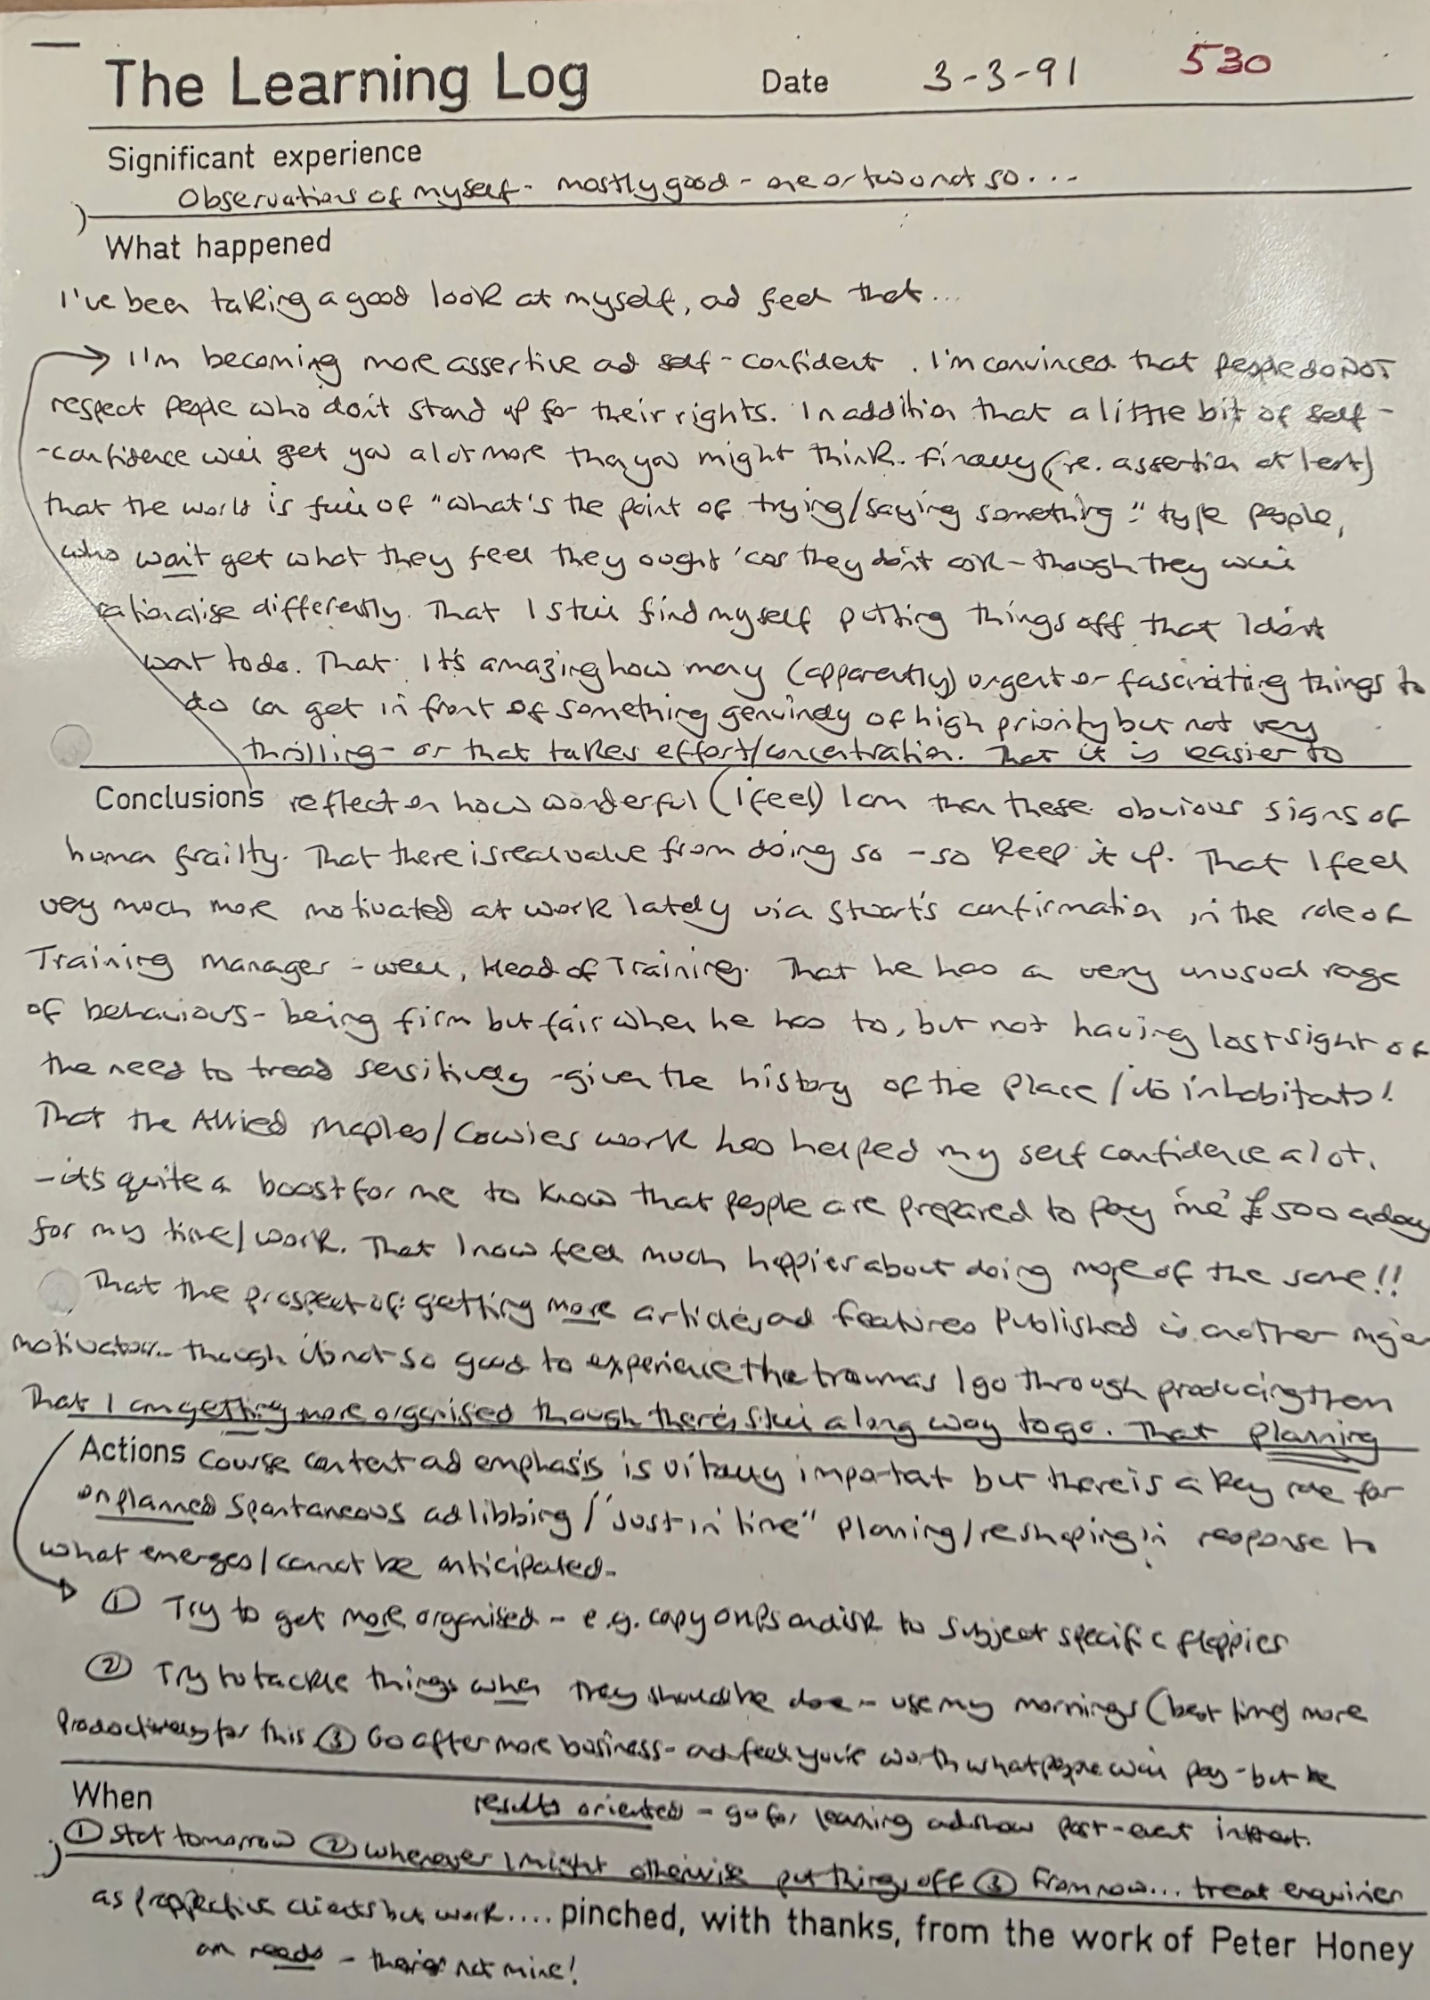 The Learning Log Date 3-3-91 530
Significant experience
Observations of myself - mostly good - one or two not so...
What happened
I've been taking a good look at myself, ad feel that...
I'm becoming more assertive ad self-confident. I'm convinced that people do NOT
respect people who don't stand up for their rights. In addition that a little bit of self-
-confidence will get you a lot more than you might think. Finally (re. assertion at least)
that the world is full of "what's the point of trying/saying something" type people,
who won't get what they feel they ought 'cos they don't ask - though they will
rationalise differently. That I still find myself putting things off that I don't
want to do. That it's amazing how many (apparently) urgent or fascinating things to
do can get in front of something genuinely of high priority but not very
thrilling - or that takes effort/concentration. That it is easier to
Conclusions reflect on how wonderful (I feel) I am than these obvious signs of
human frailty. That there is real value from doing so - so keep it up. That I feel
very much more motivated at work lately via Stuart's confirmation in the role of
Training Manager - well, Head of Training. That he has a very unusual range
of behaviours - being firm but fair when he has to, but not having lost sight of
the need to tread sensitively - given the history of the place / its inhabitants!
That the Allied Maples/Cowies work has helped my self confidence a lot.
- it's quite a boost for me to know that people are prepared to pay 'me' £500 a day
for my time/work. That I now feel much happier about doing more of the same!!
That the prospect of getting more articles ad features published is another major
motivator.. though it's not so good to experience the traumas I go through producing them
That I am getting more organised though there's still a long way to go. That planning
Actions course content ad emphasis is vitally important but there is a key role for
unplanned spontaneous ad libbing / "just in time" planning/reshaping in response to
what emerges / cannot be anticipated.
① Try to get more organised - e.g. copy on disk to subject specific floppies
② Try to tackle things when they should be done - use my mornings (best time) more
productively for this ③ Go after more business - ad feel you're worth what people will pay - but be
When results oriented - go for learning ad show post-event interest.
① Start tomorrow ② Whenever I might otherwise put things off ③ From now... treat enquiries
as prospective clients but work.... pinched, with thanks, from the work of Peter Honey
on needs - theirs not mine!